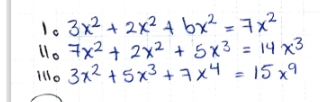 1. 3x² + 2x² + bx² = 7x²
11. 7x² + 2x² + 5x³ = 14x³
111. 3x² + 5x³ + 7x⁴ = 15x⁹